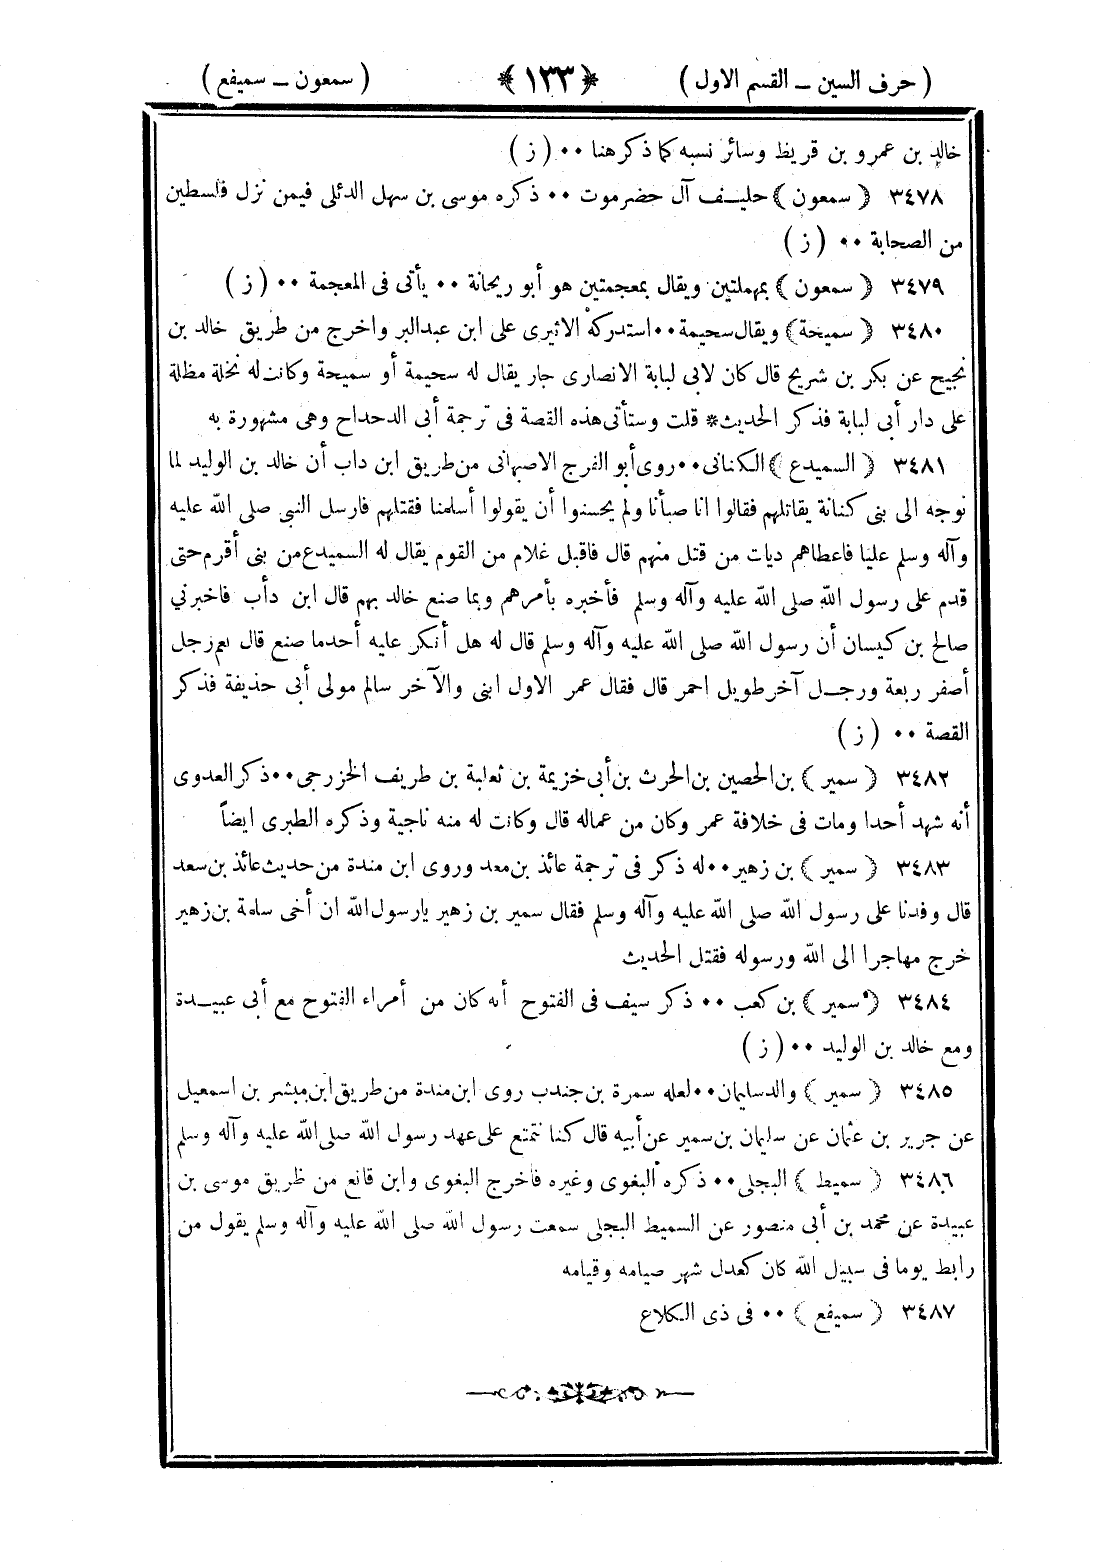 ( حرف السين ـ القسم الاول ) ﴿ ١٣٣ ﴾ ( سمعون ـ سميفع )
خالد بن عمرو بن قريظ وسائر نسبه كما ذكر هنا ٠٠ ( ز )
٣٤٧٨ ( سمعون ) حليف آل حضرموت ٠٠ ذكره موسى بن سهل الدئلى فيمن نزل فلسطين
من الصحابة ٠٠ ( ز )
٣٤٧٩ ( سمعون ) بمهملتين ويقال بمعجمتين هو أبو ريحانة ٠٠ يأتى فى المعجمة ٠٠ ( ز )
٣٤٨٠ ( سميحة ) ويقال سحيمة ٠٠ استدركه الاثيرى على ابن عبدالبر واخرج من طريق خالد بن
نجيح عن بكر بن شريح قال كان لابى لبابة الانصارى جار يقال له سحيمة أو سميحة وكانت له نخلة مظلة
على دار أبى لبابة فذكر الحديث * قلت وستأتى هذه القصة فى ترجمة أبى الدحداح وهى مشهورة به
٣٤٨١ ( السميدع ) الكنانى ٠٠ روى أبو الفرج الاصبهانى من طريق ابن داب أن خالد بن الوليد لما
توجه الى بنى كنانة يقاتلهم فقالوا انا صبأنا ولم يحسنوا أن يقولوا أسلمنا فقتلهم فارسل النبى صلى الله عليه
وآله وسلم عليا فاعطاهم ديات من قتل منهم قال فاقبل غلام من القوم يقال له السميدع من بنى أقرم حتى
قدم على رسول الله صلى الله عليه وآله وسلم فأخبره بأمرهم وبما صنع خالد بهم قال ابن دأب فاخبرني
صالح بن كيسان أن رسول الله صلى الله عليه وآله وسلم قال له هل أنكر عليه أحد ما صنع قال نعم رجل
أصفر ربعة ورجل آخر طويل احمر قال فقال عمر الاول ابنى والآخر سالم مولى أبى حذيفة فذكر
القصة ٠٠ ( ز )
٣٤٨٢ ( سمير ) بن الحصين بن الحرث بن أبى خزيمة بن ثعلبة بن طريف الخزرجى ٠٠ ذكر العدوى
أنه شهد أحدا ومات فى خلافة عمر وكان من عماله قال وكانت له منه ناجية وذكره الطبرى ايضاً
٣٤٨٣ ( سمير ) بن زهير ٠٠ له ذكر فى ترجمة عائذ بن معد وروى ابن مندة من حديث عائذ بن سعد
قال وفدنا على رسول الله صلى الله عليه وآله وسلم فقال سمير بن زهير يارسول الله ان أخى سامة بن زهير
خرج مهاجرا الى الله ورسوله فقتل الحديث
٣٤٨٤ ( سمير ) بن كعب ٠٠ ذكر سيف فى الفتوح أنه كان من أمراء الفتوح مع أبى عبيدة
ومع خالد بن الوليد ٠٠ ( ز )
٣٤٨٥ ( سمير ) والد سليمان ٠٠ لعله سمرة بن جندب روى ابن مندة من طريق ابن مبشر بن اسمعيل
عن جرير بن عثمان عن سليمان بن سمير عن أبيه قال كنا نتمتع على عهد رسول الله صلى الله عليه وآله وسلم
٣٤٨٦ ( سميط ) البجلى ٠٠ ذكره البغوى وغيره فأخرج البغوى وابن قانع من طريق موسى بن
عبيدة عن محمد بن أبى منصور عن السميط البجلى سمعت رسول الله صلى الله عليه وآله وسلم يقول من
رابط يوما فى سبيل الله كان كعدل شهر صيامه وقيامه
٣٤٨٧ ( سميفع ) ٠٠ فى ذى الكلاع